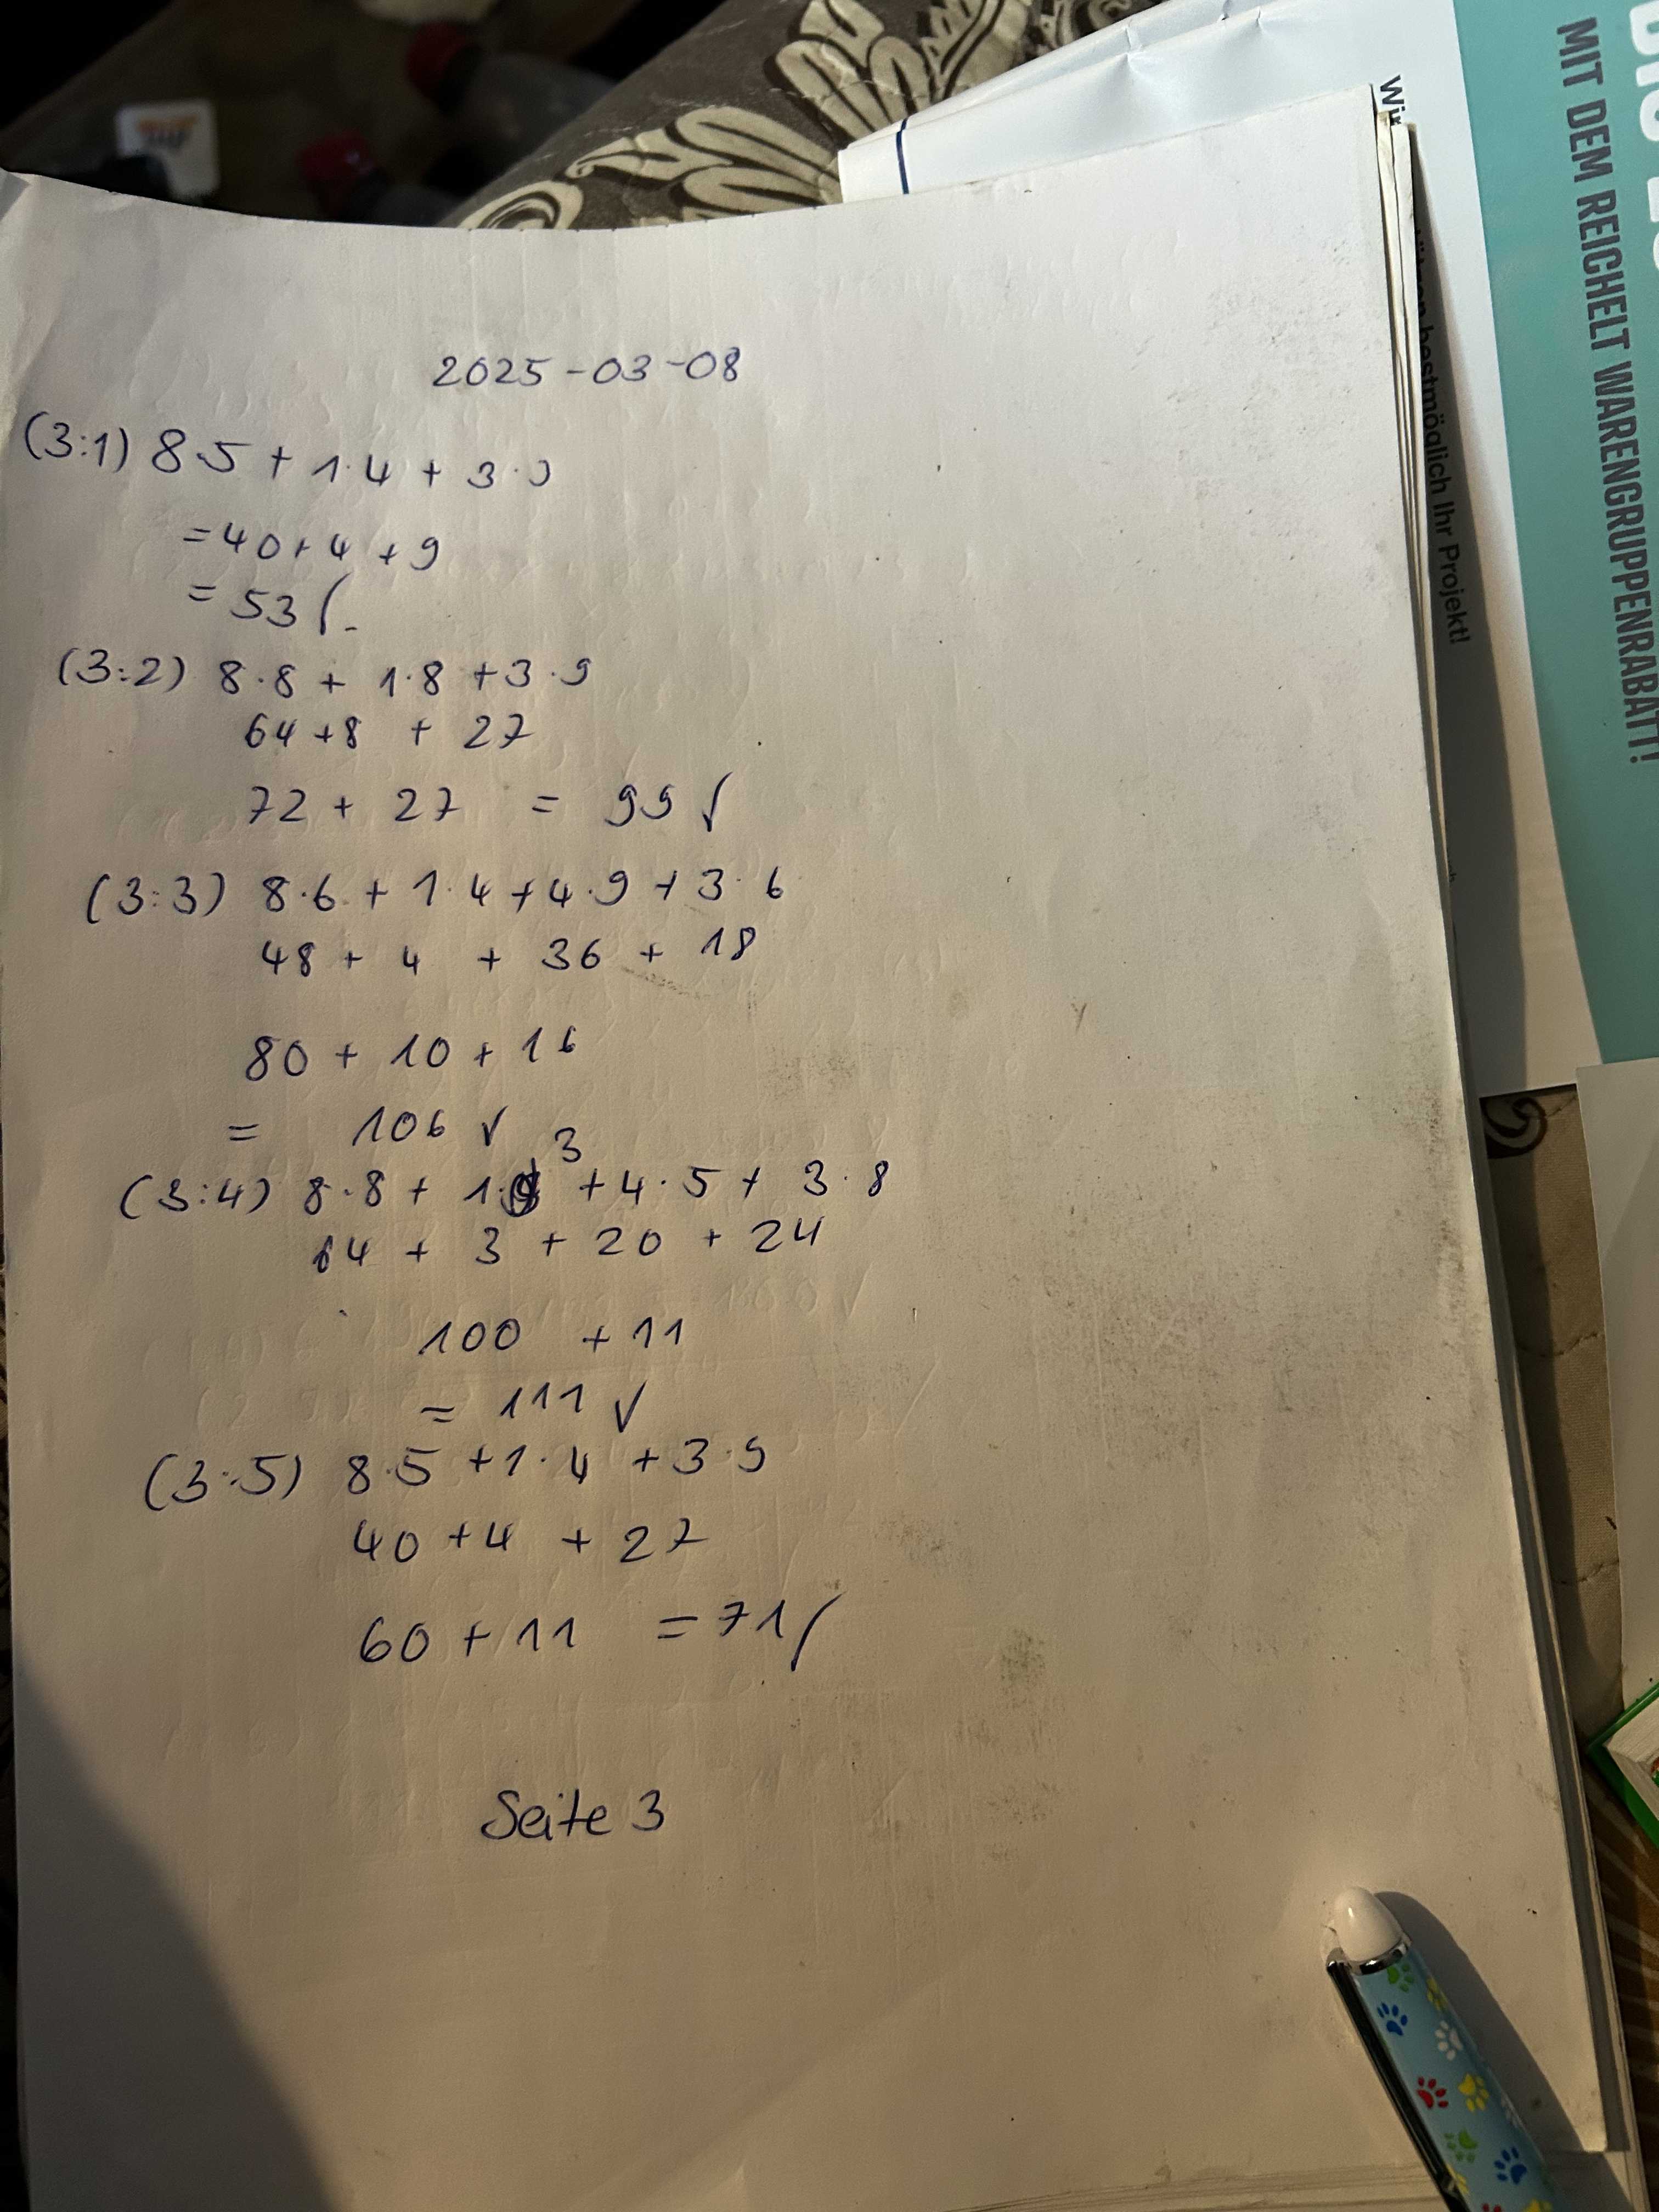 2025-03-08
(3:1) 8 5 + 1·4 + 3·3
= 40 + 4 + 9
= 53 √
(3:2) 8·8 + 1·8 + 3·9
64 + 8 + 27
72 + 27 = 99 √
(3:3) 8·6 + 1·4 + 4·9 + 3·6
48 + 4 + 36 + 18
80 + 10 + 16
= 106 √
(3:4) 8·8 + 1·3 + 4·5 + 3·8
64 + 3 + 20 + 24
100 + 11
= 111 √
(3:5) 8·5 + 1·4 + 3·9
40 + 4 + 27
60 + 11 = 71 √
Seite 3
bestmöglich Ihr Projekt!
MIT DEM REICHELT WARENGRUPPENRABATT!